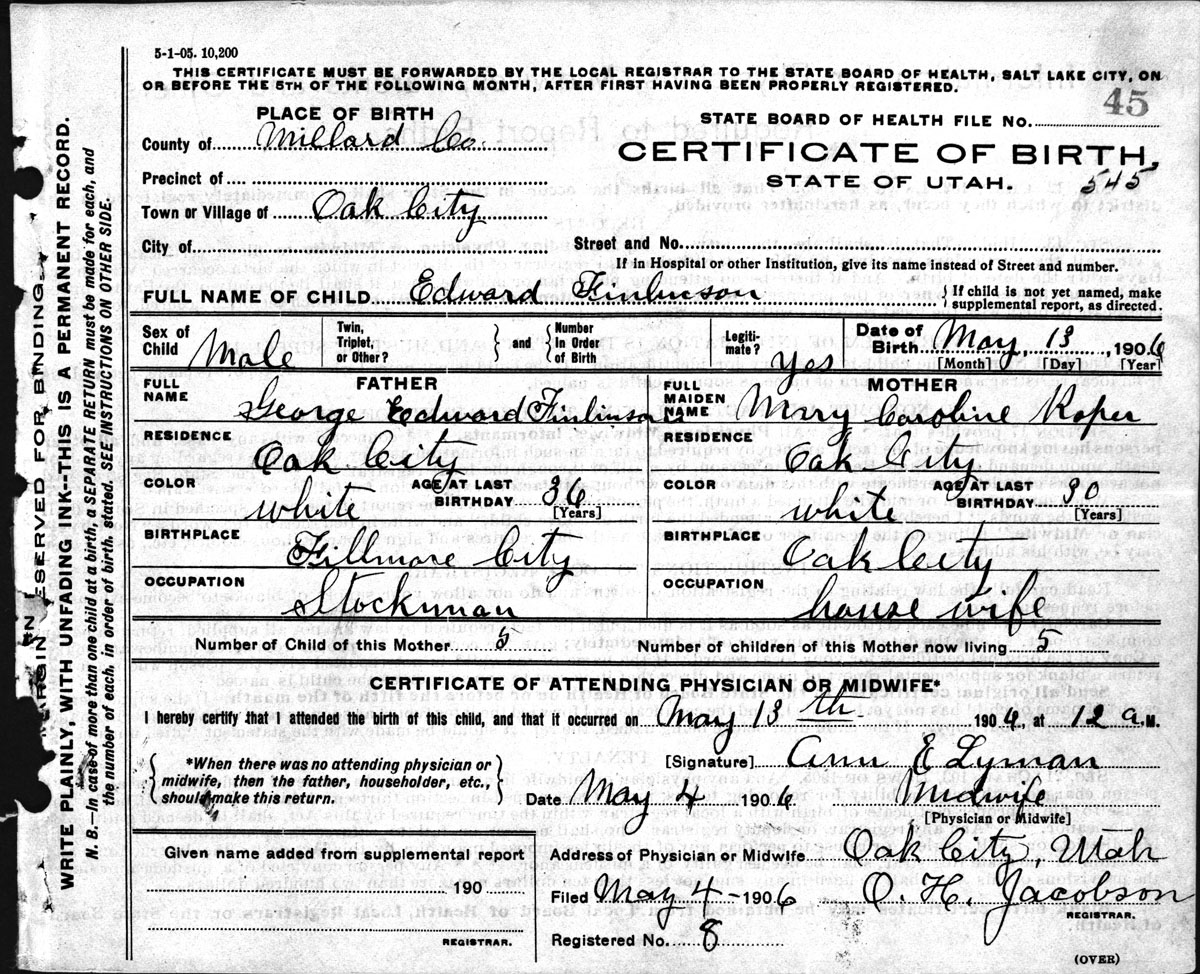 5-1-05. 10,200
THIS CERTIFICATE MUST BE FORWARDED BY THE LOCAL REGISTRAR TO THE STATE BOARD OF HEALTH, SALT LAKE CITY, ON
OR BEFORE THE 5TH OF THE FOLLOWING MONTH, AFTER FIRST HAVING BEEN PROPERLY REGISTERED.
45
PLACE OF BIRTH
STATE BOARD OF HEALTH FILE No.
County of Millard Co.
CERTIFICATE OF BIRTH,
Precinct of
STATE OF UTAH. 545
Town or Village of Oak City
City of Street and No.
If in Hospital or other Institution, give its name instead of Street and number.
FULL NAME OF CHILD Edward Finlinson { If child is not yet named, make
supplemental report, as directed.
Sex of Child Male Twin, Triplet, or Other? } and { Number In Order of Birth Legiti- mate? Yes Date of Birth May, 13, 1906
[Month] [Day] [Year]
FULL NAME FATHER George Edward Finlinson
FULL MAIDEN NAME MOTHER Mary Caroline Roper
RESIDENCE Oak City
RESIDENCE Oak City
COLOR white AGE AT LAST BIRTHDAY 36 [Years]
COLOR white AGE AT LAST BIRTHDAY 30 [Years]
BIRTHPLACE Fillmore City
BIRTHPLACE Oak City
OCCUPATION Stockman
OCCUPATION house wife
Number of Child of this Mother 5 Number of children of this Mother now living 5
CERTIFICATE OF ATTENDING PHYSICIAN OR MIDWIFE*
I hereby certify that I attended the birth of this child, and that it occurred on May 13th 1906, at 12 a.M.
*When there was no attending physician or
midwife, then the father, householder, etc.,
should make this return.
[Signature] Ann E Lyman
Date May 4 1906 Midwife
[Physician or Midwife]
Given name added from supplemental report
190
REGISTRAR.
Address of Physician or Midwife Oak City, Utah
Filed May 4-1906 O. H. Jacobson
REGISTRAR.
Registered No. 8
(OVER)
MARGIN RESERVED FOR BINDING.
WRITE PLAINLY, WITH UNFADING INK--THIS IS A PERMANENT RECORD.
N. B.--In case of more than one child at a birth, a SEPARATE RETURN must be made for each, and
the number of each, in order of birth, stated. SEE INSTRUCTIONS ON OTHER SIDE.